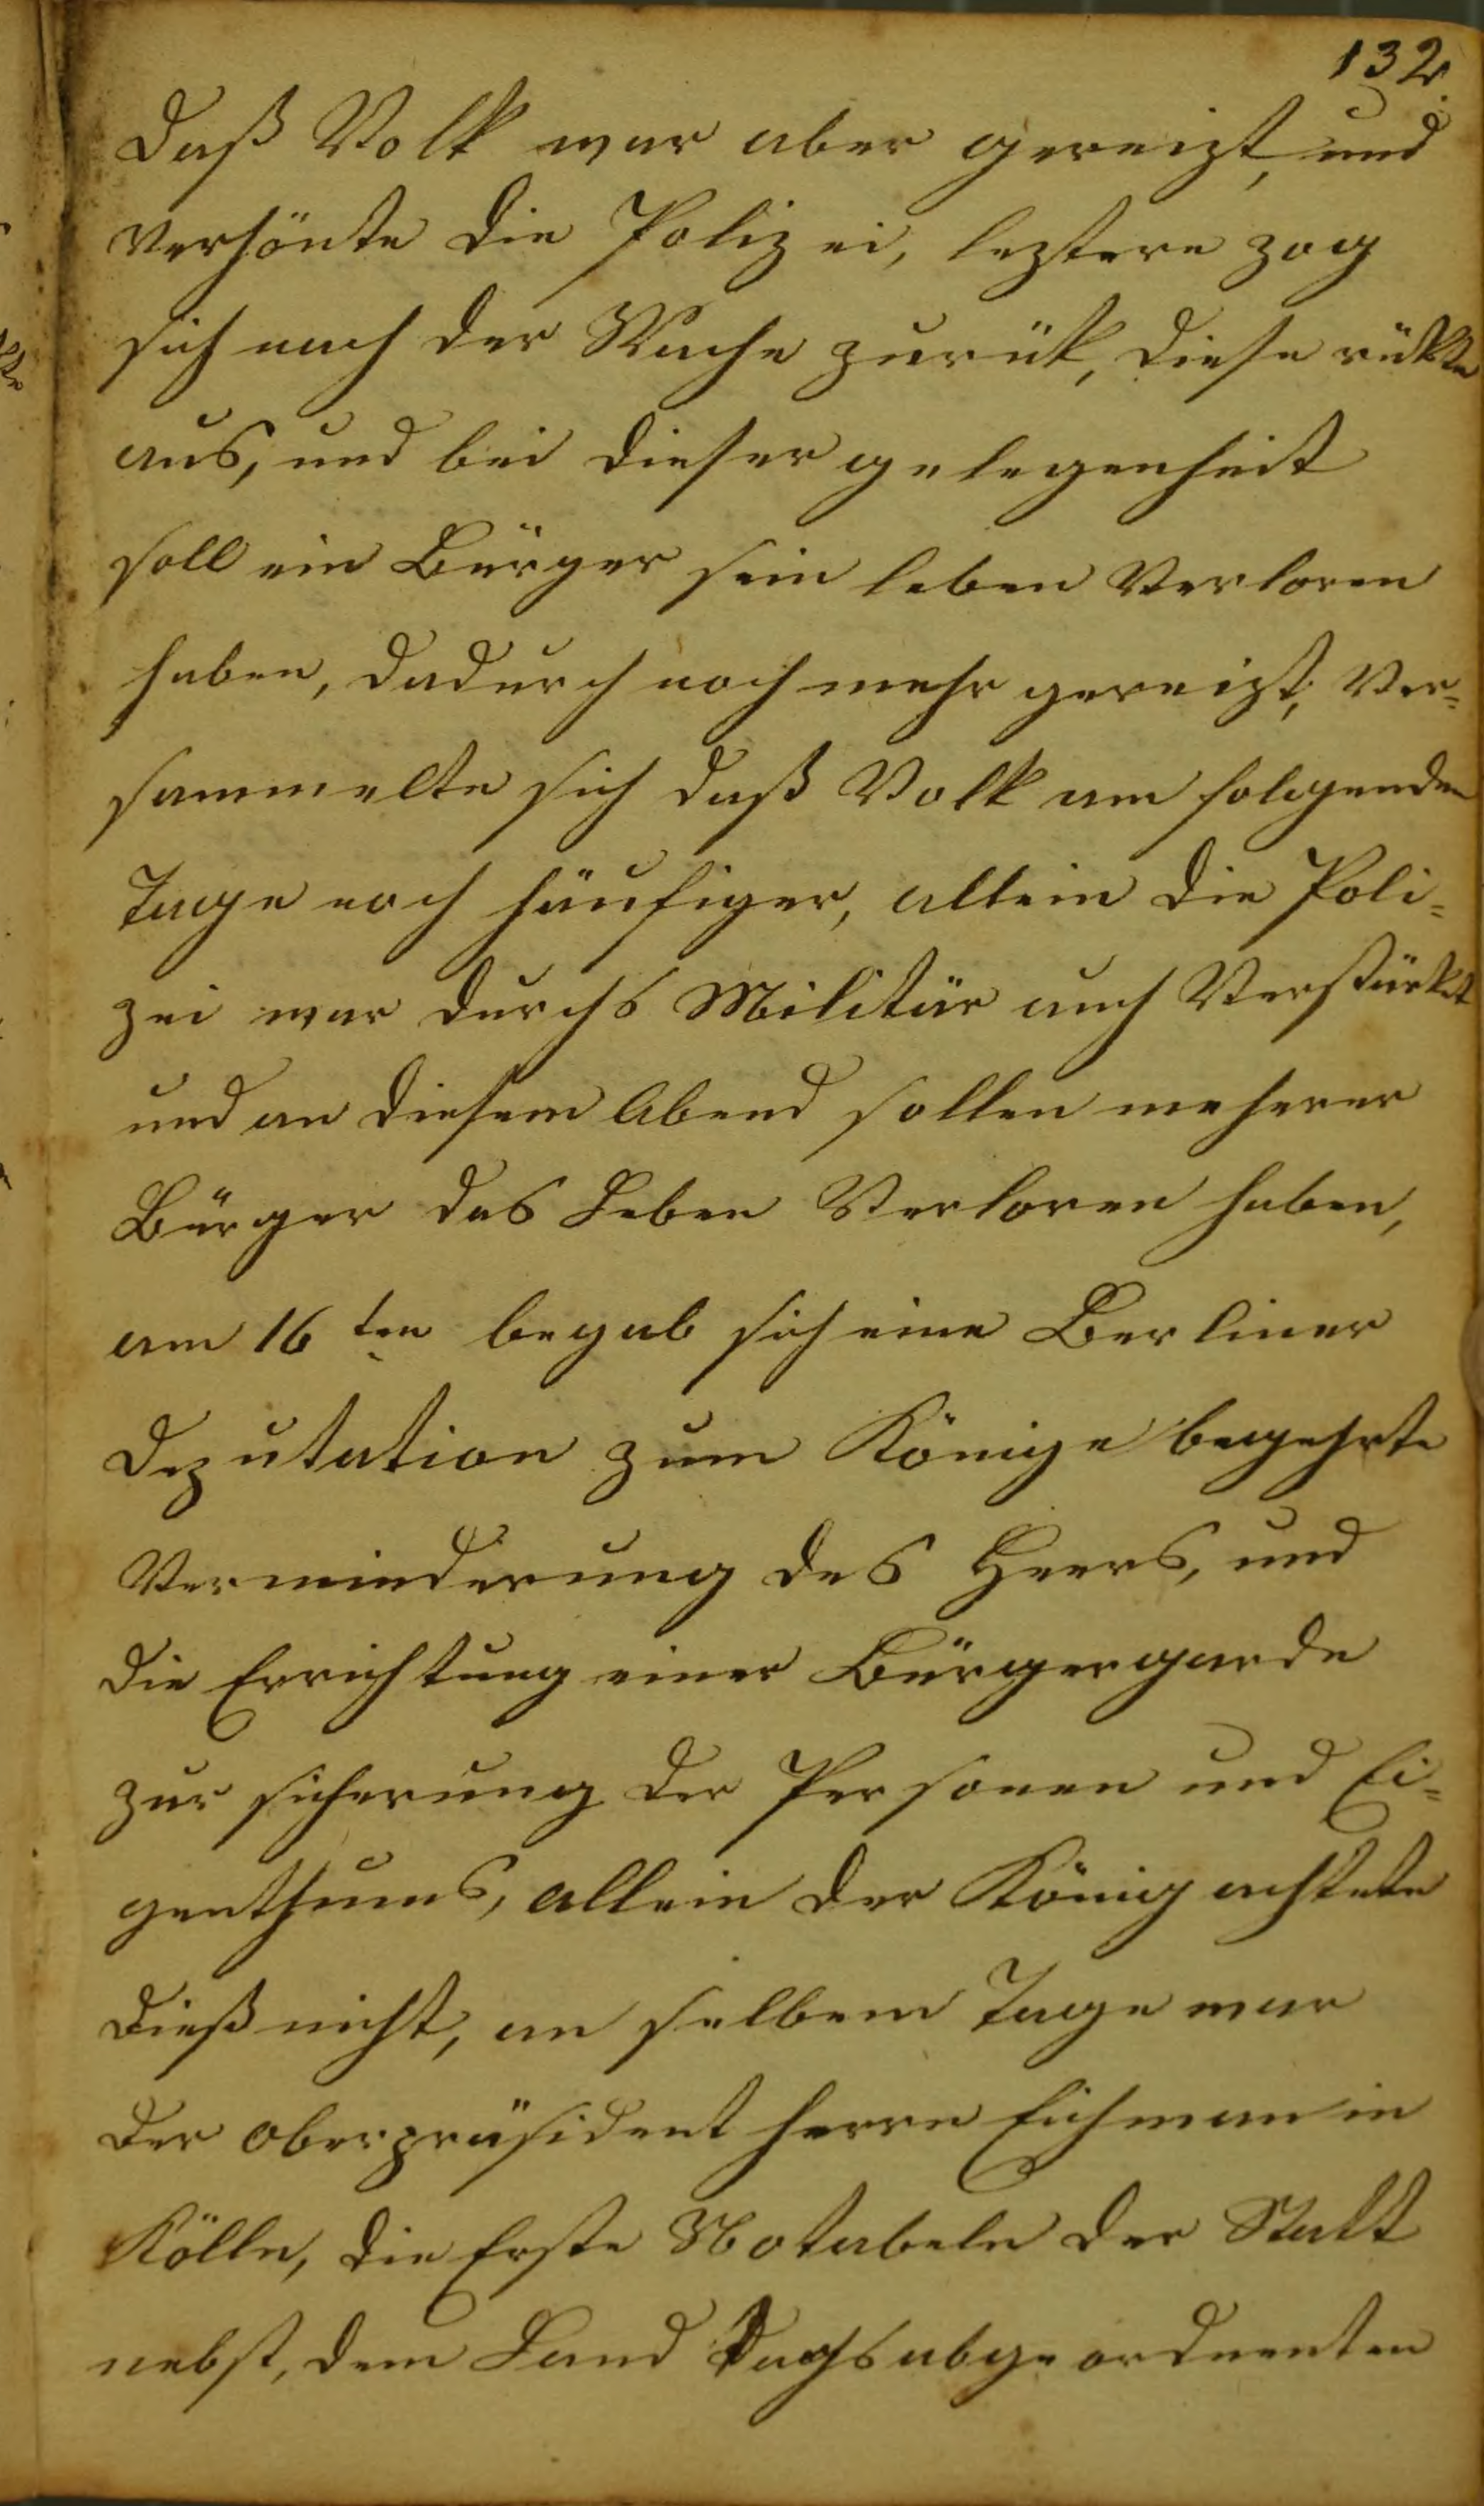 132.
daß Volk war aber gereizt, und
verhönte die Polizei, leztere zog
sich nach der Wache zurük, diese rükte
aus, und bei dieser gelegenheit
soll ein Bürger sein leben Verloren
haben, dadurch noch mehr gereizt, Ver=
sammelte sich daß Volk am folgenden
Tage noch häufiger, allein die Poli=
zei war durchs Militär auch Verstärkt
und an diesem Abend sollen meherer
Bürger das Leben Verloren haben,
am 16ten begab sich eine Berliner
Deputation zum Könige begehrte
Verminderung des Heers, und
die Errichtung einer Bürgergarde
zur sicherung der Personen und Ei=
genthums, allein der König achtete
dieß nicht, an selbem Tage war
der oberpräsident herrn Eichman in
Kölln, die Erste Notabeln der Statt
nebst, dem Land Tagsabgeordnenten